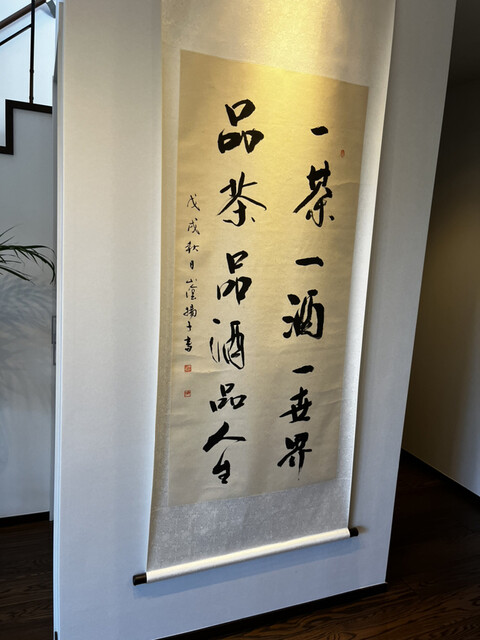 一茶一酒一世界
品茶品酒品人生
戊戌秋日山阴杨子書